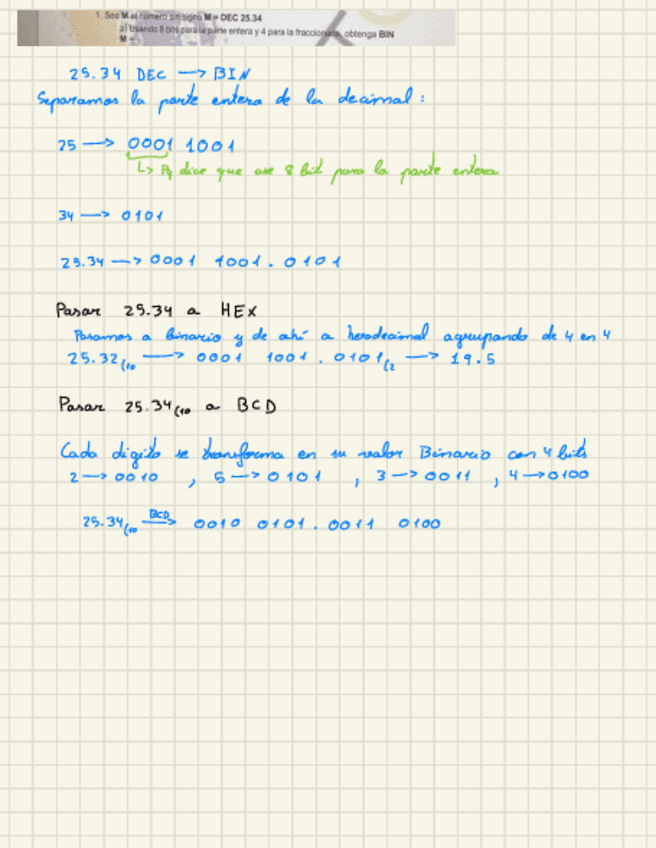 1. Sea M el número sin signo M = DEC 25.34
a) Usando 8 bits para la parte entera y 4 para la fraccionaria, obtenga BIN
M =
25.34 DEC → BIN
Separamos la parte entera de la decimal :
25 → 0001 1001
↳ Pq dice que use 8 bit para la parte entera
34 → 0101
25.34 → 0001 1001 . 0101
Pasar 25.34 a HEX
Pasamos a binario y de ahí a hexadecimal agrupando de 4 en 4
25.32(10 → 0001 1001 . 0101(2 → 19.5
Pasar 25.34(10 a BCD
Cada digito se transforma en su valor Binario con 4 bits
2 → 0010 , 5 → 0101 , 3 → 0011 , 4 → 0100
25.34(10 BCD→ 0010 0101 . 0011 0100